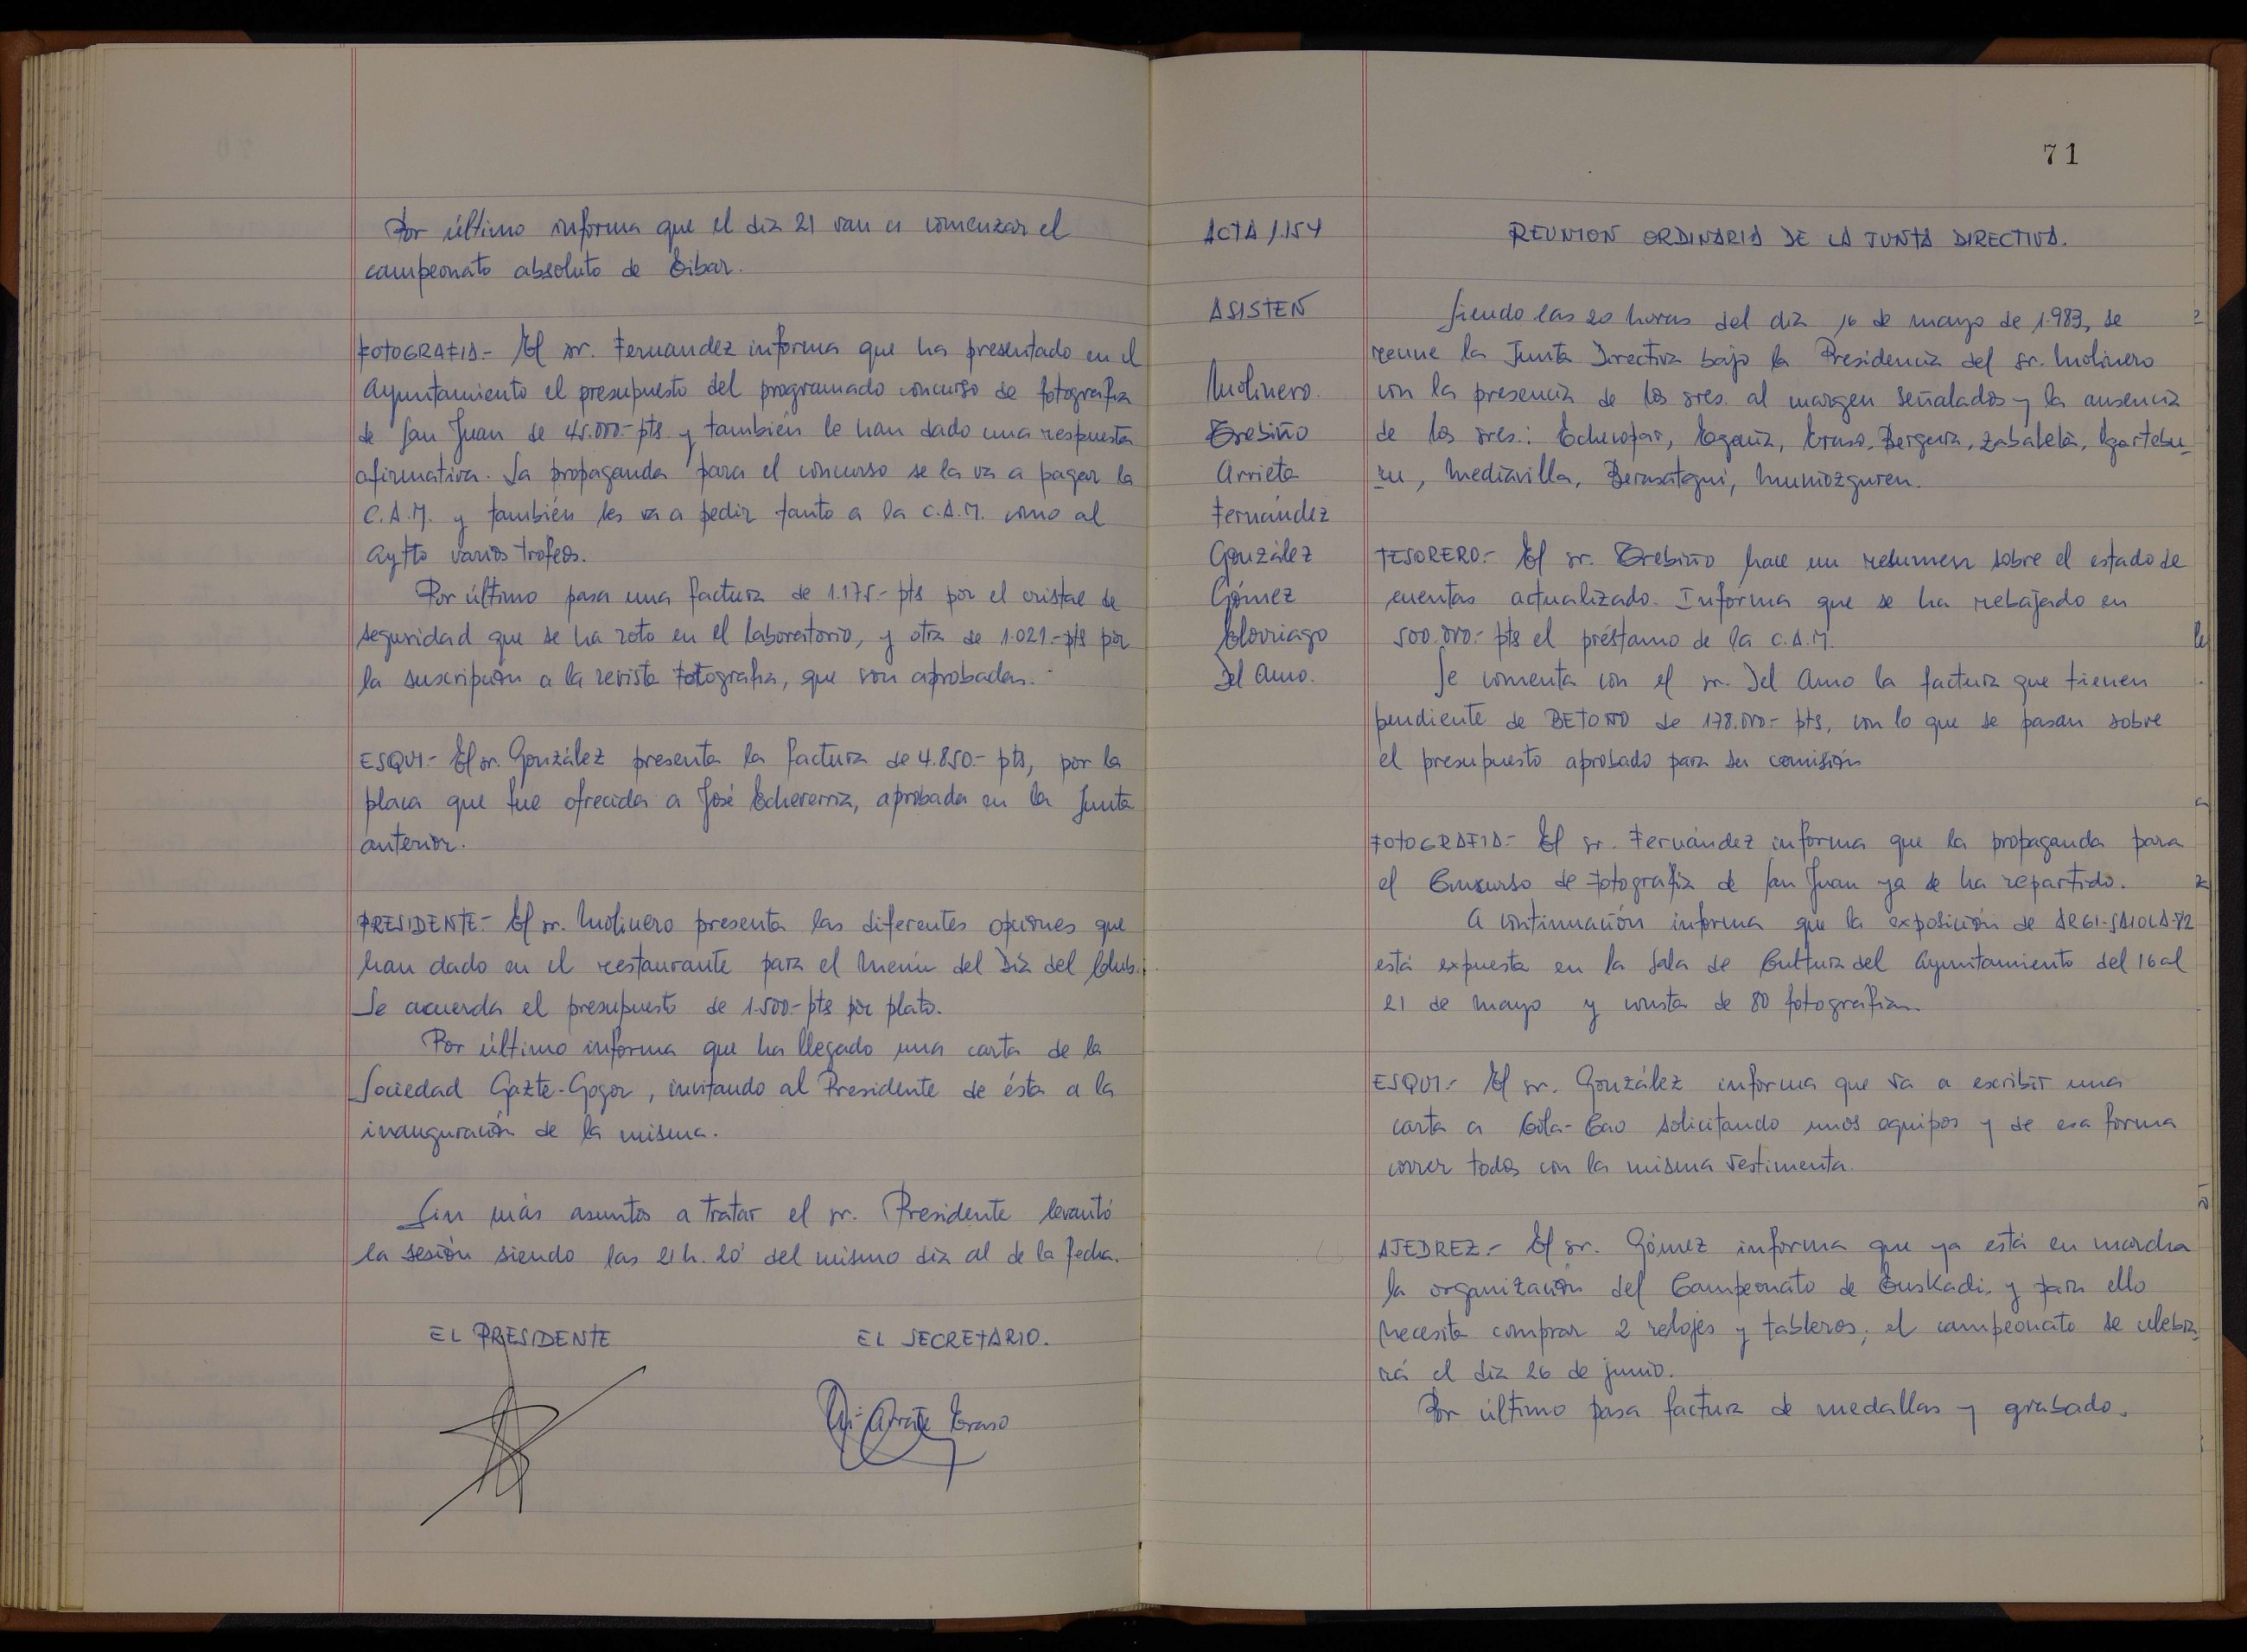 Por último informa que el día 21 van a comenzar el
campeonato absoluto de Eibar.
FOTOGRAFIA.- El sr. Fernandez informa que ha presentado en el
Ayuntamiento el presupuesto del programado concurso de fotografía
de San Juan de 45.000.- pts y también le han dado una respuesta
afirmativa. La propaganda para el concurso se la va a pagar la
C.A.M. y también les va a pedir tanto a la C.A.M. como al
Aytto varios trofeos.
Por último pasa una factura de 1.175.- pts por el cristal de
seguridad que se ha roto en el laboratorio, y otra de 1.021.- pts por
la suscripción a la revista Fotografía, que son aprobadas.
ESQUI.- El sr. González presenta la factura de 4.850.- pts, por la
placa que fue ofrecida a José Echeverría, aprobada en la Junta
anterior.
PRESIDENTE.- El sr. Molinero presenta las diferentes opciones que
han dado en el restaurante para el Menú del Día del Club.
Se acuerda el presupuesto de 1.500.- pts por plato.
Por último informa que ha llegado una carta de la
Sociedad Gazte-Gogor, invitando al Presidente de ésta a la
inauguración de la misma.
Sin más asuntos a tratar el sr. Presidente levantó
la sesión siendo las 21 h. 20' del mismo día al de la fecha.
EL PRESIDENTE EL SECRETARIO.
Arrate Eraso
71
ACTA 1.154
REUNION ORDINARIA DE LA JUNTA DIRECTIVA.
ASISTEN
Molinero.
Trebiño
Arrieta
Fernández
González
Gómez
Elorriaga
Del Amo.
Siendo las 20 horas del día 16 de mayo de 1.983, se
reune la Junta Directiva bajo la Presidencia del sr. Molinero
con la presencia de los sres. al margen señalados y la ausencia
de los sres.: Echeopar, Egaña, Eraso, Bergara, Zabaleta, Ygartebu-
ru, Mediavilla, Berasategui, Muniozguren.
TESORERO.- El sr. Trebiño hace un resumen sobre el estado de
cuentas actualizado. Informa que se ha rebajado en
500.000.- pts el préstamo de la C.A.M.
Se comenta con el sr. Del Amo la factura que tienen
pendiente de BETOÑO de 178.000.- pts, con lo que se pasan sobre
el presupuesto aprobado para su comisión
FOTOGRAFIA.- El sr. Fernández informa que la propaganda para
el Concurso de Fotografía de San Juan ya se ha repartido.
A continuación informa que la exposición de ARGI-JAIOLA-72
está expuesta en la Sala de Cultura del Ayuntamiento del 16 al
21 de mayo y consta de 80 fotografías.
ESQUI.- El sr. González informa que va a escribir una
carta a Cola-Cao solicitando unos equipos y de esa forma
correr todos con la misma vestimenta.
AJEDREZ.- El sr. Gómez informa que ya está en marcha
la organización del Campeonato de Euskadi, y para ello
necesita comprar 2 relojes y tableros; el campeonato se celebra-
rá el día 26 de junio.
Por último pasa factura de medallas y grabado.